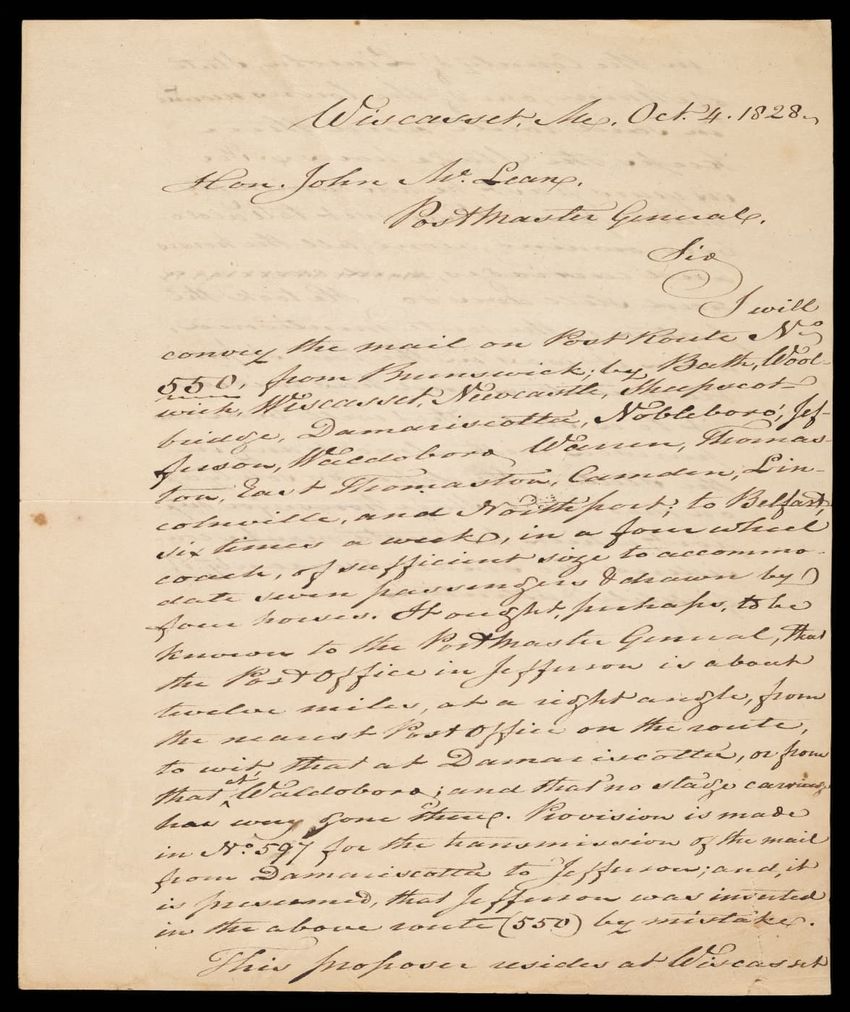 Wiscasset, Me. Oct. 4. 1828.
Hon. John McLean,
PostMaster General.
Sir
I will
convey the mail on Post Route No
550, from Brunswick, by Bath, Wool-
wich, Wiscasset, Newcastle, Sheepscot-
bridge, Damariscotta, Nobleboro', Jef-
ferson, Waldoboro, Warren, Thomas-
ton, East Thomaston, Camden, Lin-
colnville, and Northport; to Belfast,
six times a week, in a four wheel
coach, of sufficient size to accommo-
date seven passengers & drawn by
four horses. It ought, perhaps, to be
known to the PostMaster General, that
the Post Office in Jefferson is about
twelve miles, at a right angle, from
the nearest Post Office on the route,
to wit, that at Damariscotta, or from
that at Waldoboro; and that no stage carriage
has ever gone there. Provision is made
in No. 597 for the transmission of the mail
from Damariscotta to Jefferson; and, it
is presumed, that Jefferson was inserted
in the above route (550) by mistake.
This proposer resides at Wiscasset